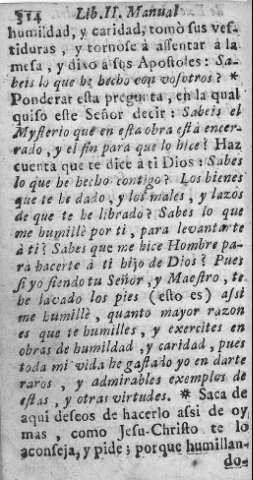 314 Lib. II. Manual
humildad, y caridad, tomò sus ves-
tiduras, y tornose à assentar à la
mesa, y dixo à sus Apostoles: Sa-
beis lo que he hecho con vosotros? *
Ponderar esta pregunta, en la qual
quiso este Señor decir: Sabeis el
Mysterio que en esta obra està encer-
rado, y el fin para que lo hice? Haz
cuenta que te dice a ti Dios: Sabes
lo que he hecho contigo? Los bienes
que te he dado, y los males, y lazos
de que te he librado? Sabes lo que
me humillè por ti, para levantarte
à ti? Sabes que me hice Hombre pa-
ra hacerte à ti hijo de Dios? Pues
si yo siendo tu Señor, y Maestro, te
he lavado los pies (esto es) assi
me humillè, quanto mayor razon
es que te humilles, y exercites en
obras de humildad, y caridad, pues
toda mi vida he gastado yo en darte
raros, y admirables exemplos de
estas, y otras virtudes. * Saca de
aqui deseos de hacerlo assi de oy
mas, como Jesu-Christo te lo
aconseja, y pide; porque humillan-
do-